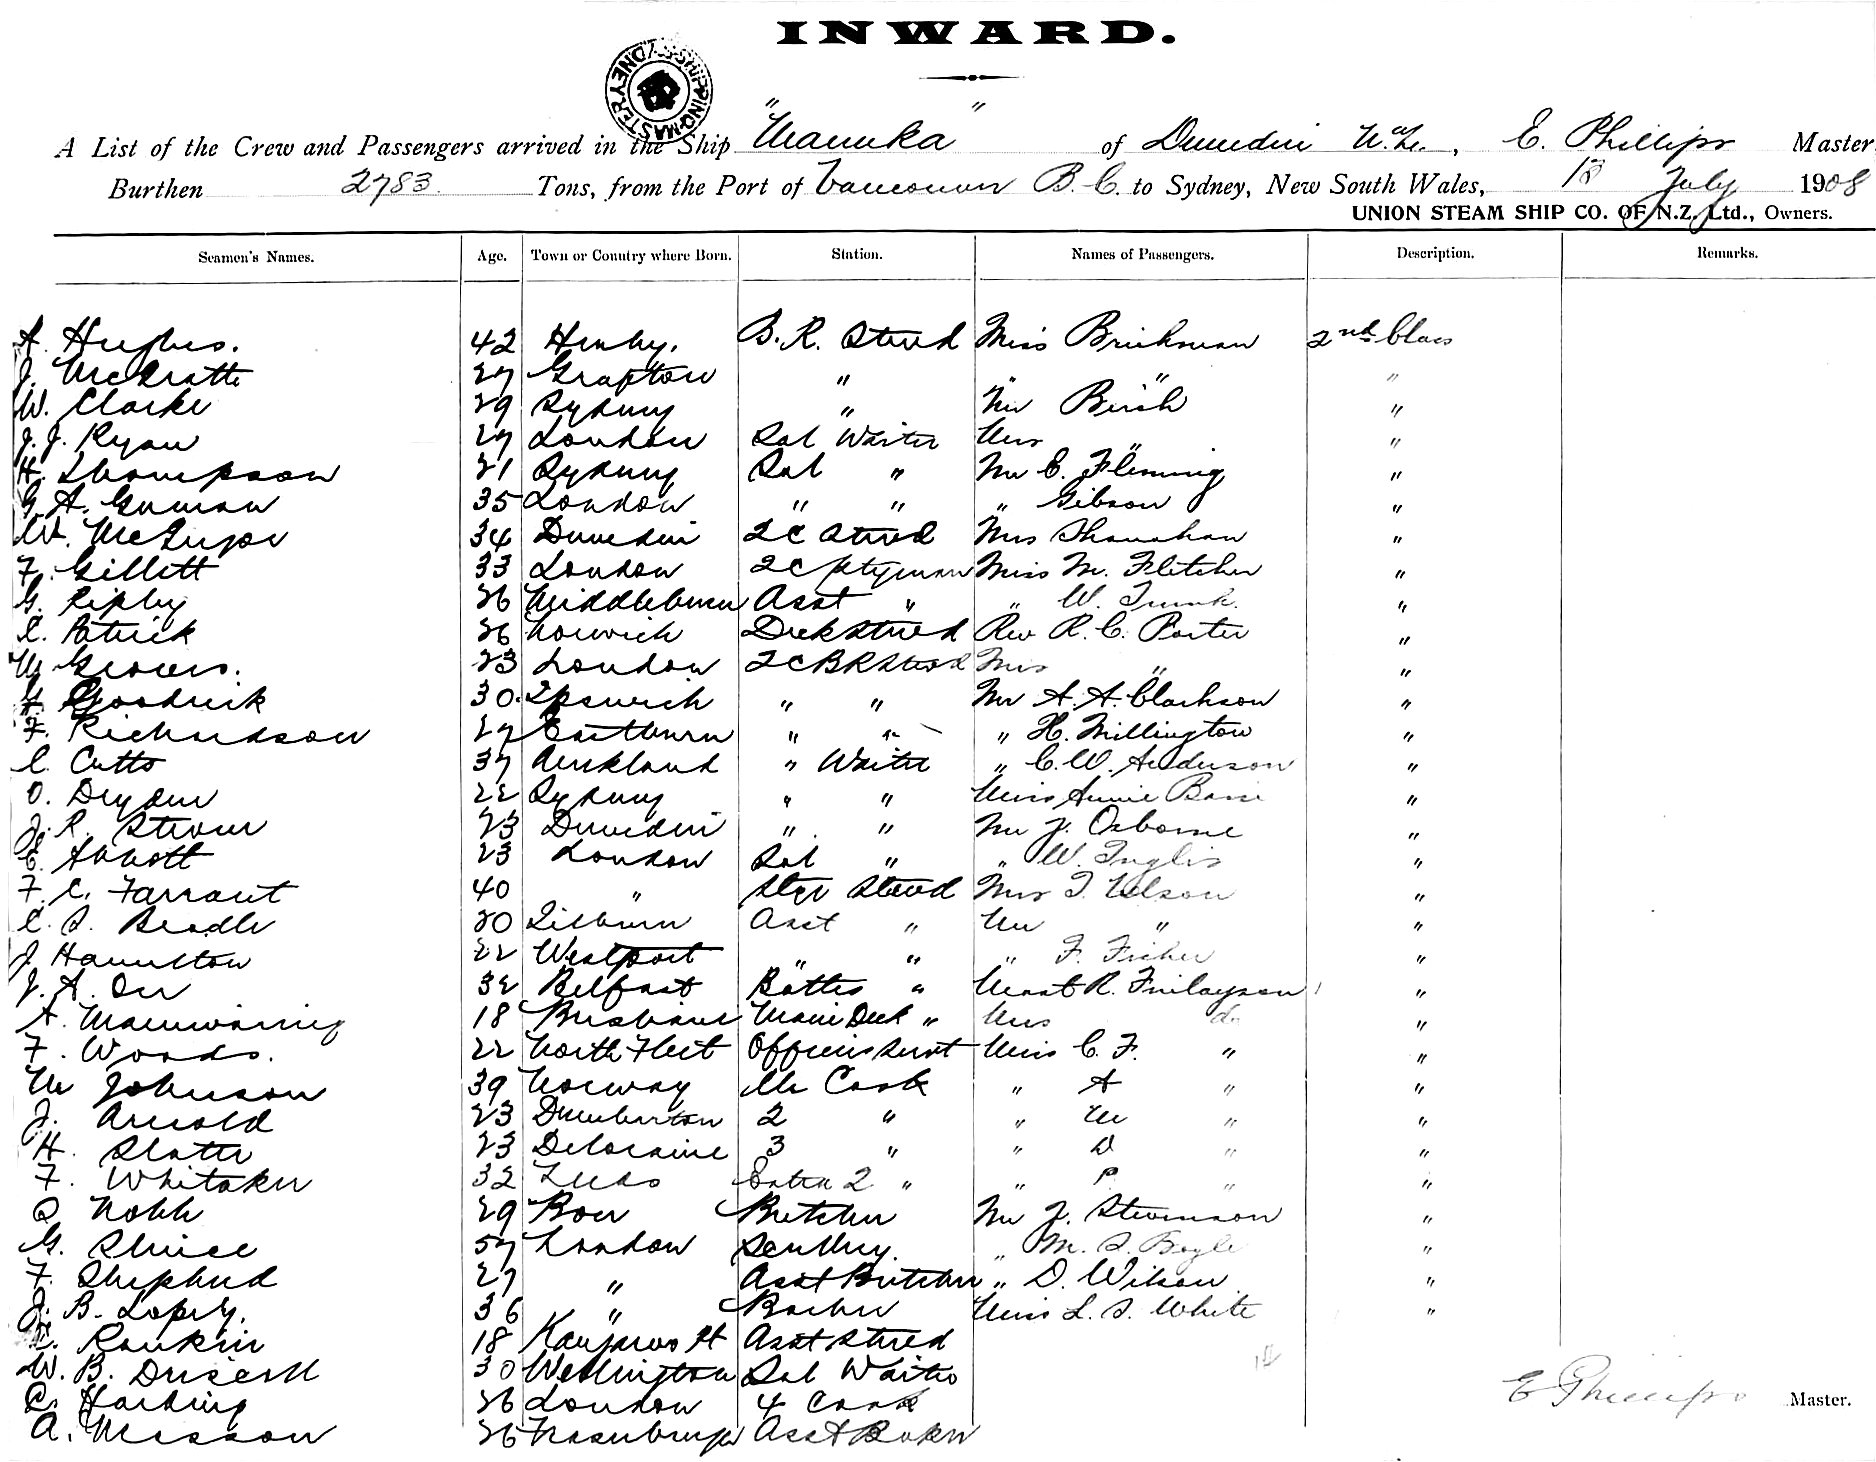 INWARD.
SHIPPING MASTER SYDNEY
A List of the Crew and Passengers arrived in the Ship "Manuka" of Dunedin N.Z., E. Phillips Master
Burthen 2783 Tons, from the Port of Vancouver B.C. to Sydney, New South Wales, July 1908
UNION STEAM SHIP CO. OF N.Z. Ltd., Owners.
Seamen's Names. Age. Town or Country where Born. Station. Names of Passengers. Description. Remarks.
A. Hughes. 42 Henley. B.R. Sterd Miss Brinkman 2nd Class
J. McGrath 27 Grafton " " " "
W. Clarke 29 Sydney " Mr Birch "
J. J. Ryan 27 London Sal Waiter Mrs " "
H. Thompson 21 Sydney Sal " Mr C. Fleming "
G. A. 35 London " " " Gibson "
W. McGregor 34 Dunedin 2C Sterd Mrs Shanahan "
F. Gillett 33 London 2C Miss M. Fletcher "
G. Ripley 26 Asst " " W. "
C. Patrick 26 Norwich Deck Sterd Rev R. C. Porter "
W Groves. 23 London 2CBR Sterd Mrs " "
Goodrick 30. Ipswich " " Mr A. A. Clarkson "
F. Richardson 27 Eastbourn " " " H. Millington "
C. Cutts 37 Auckland " Waiter " C. W. Anderson "
O. Dryden 22 Sydney " " Miss Annie "
J. R. Steven 23 Dunedin " " Mr J. Osborne "
E. Abbott 23 London Sal " " W. Inglis "
F. C. Farrant 40 " Sterd Mrs T. Nelson "
C. S. Beadle 20 Lisburn Asst " Mr " "
J Hamilton 22 Westport " " " F. Fisher "
J. A. Orr 32 Belfast Bottle " Mast R. Finlayson "
A. Mainwaring 18 Brisbane Main Deck " Mrs do "
F. Woods. 22 North Fleet Officers Servt Miss C. F. " "
M Johnson 39 Norway Ch Cook " A " "
J. Arnold 23 Dumbarton 2 " " M " "
H. Slater 23 Deloraine 3 " " D " "
F. Whitaker 32 Leeds Extra 2 " " P " "
29 Butcher Mr J. Stevenson "
G. 57 London Scullery. " M. S. Boyle "
F. Shepherd 27 " Asst Butcher " D. Wilson "
J. B. 36 " Baker Miss L. S. White "
Rankin 18 Kangaroo Pt Asst Sterd
W. B. Driscoll 30 Wellington Sal Waiter
C. Harding 26 London 4 Cook
A. Messon 26 Asst Baker
E Phillips Master.